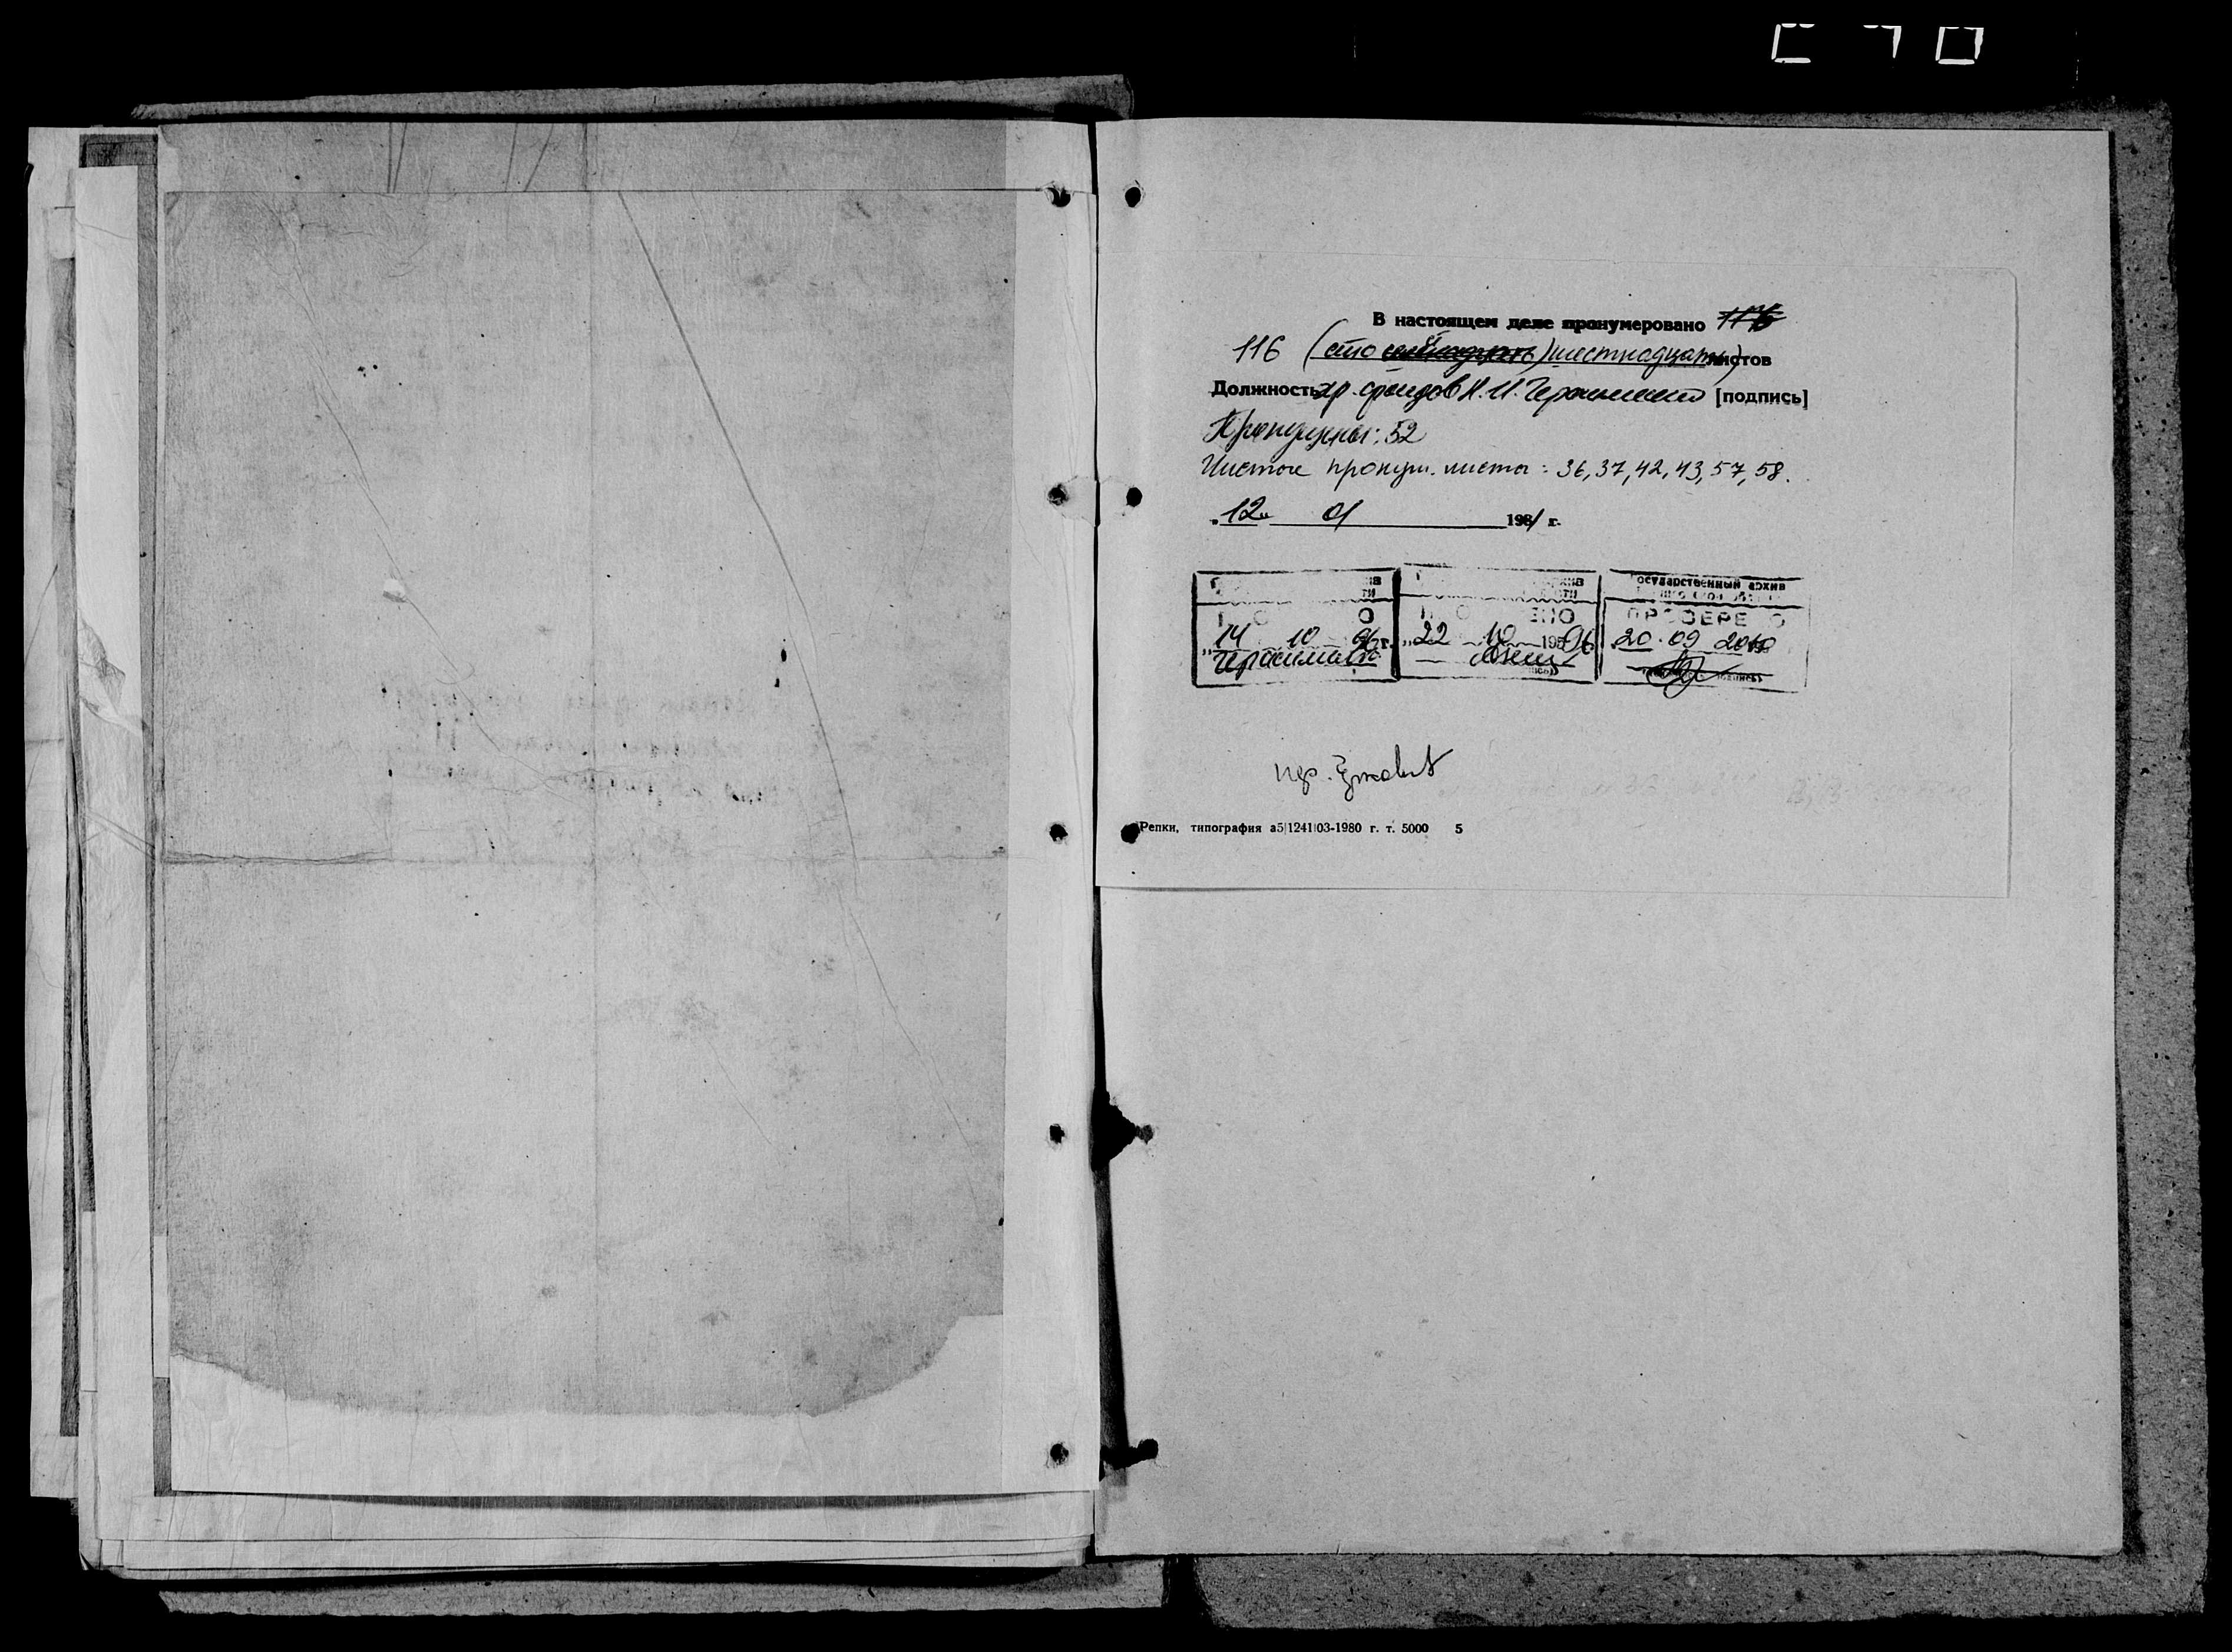 В настоящем деле пронумеровано
116 (сто шестнадцать) листов
Должность хр. фондов Н. И. [подпись]
Пропущены: 52
Чистые пронум. листы: 36, 37, 42, 43, 57, 58.
„12“ 01 1981 г.
14 10 96 г.
22 10 1996
Государственный архив
ПРОВЕРЕНО
20. 09 2010
Репки, типография а5|1241|03-1980 г. т. 5000 5